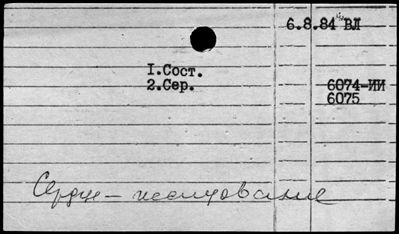 6.8.84 ВЛ
1.Сост.
2.Сер. 6074-ИИ
6075
Сердце - исследование